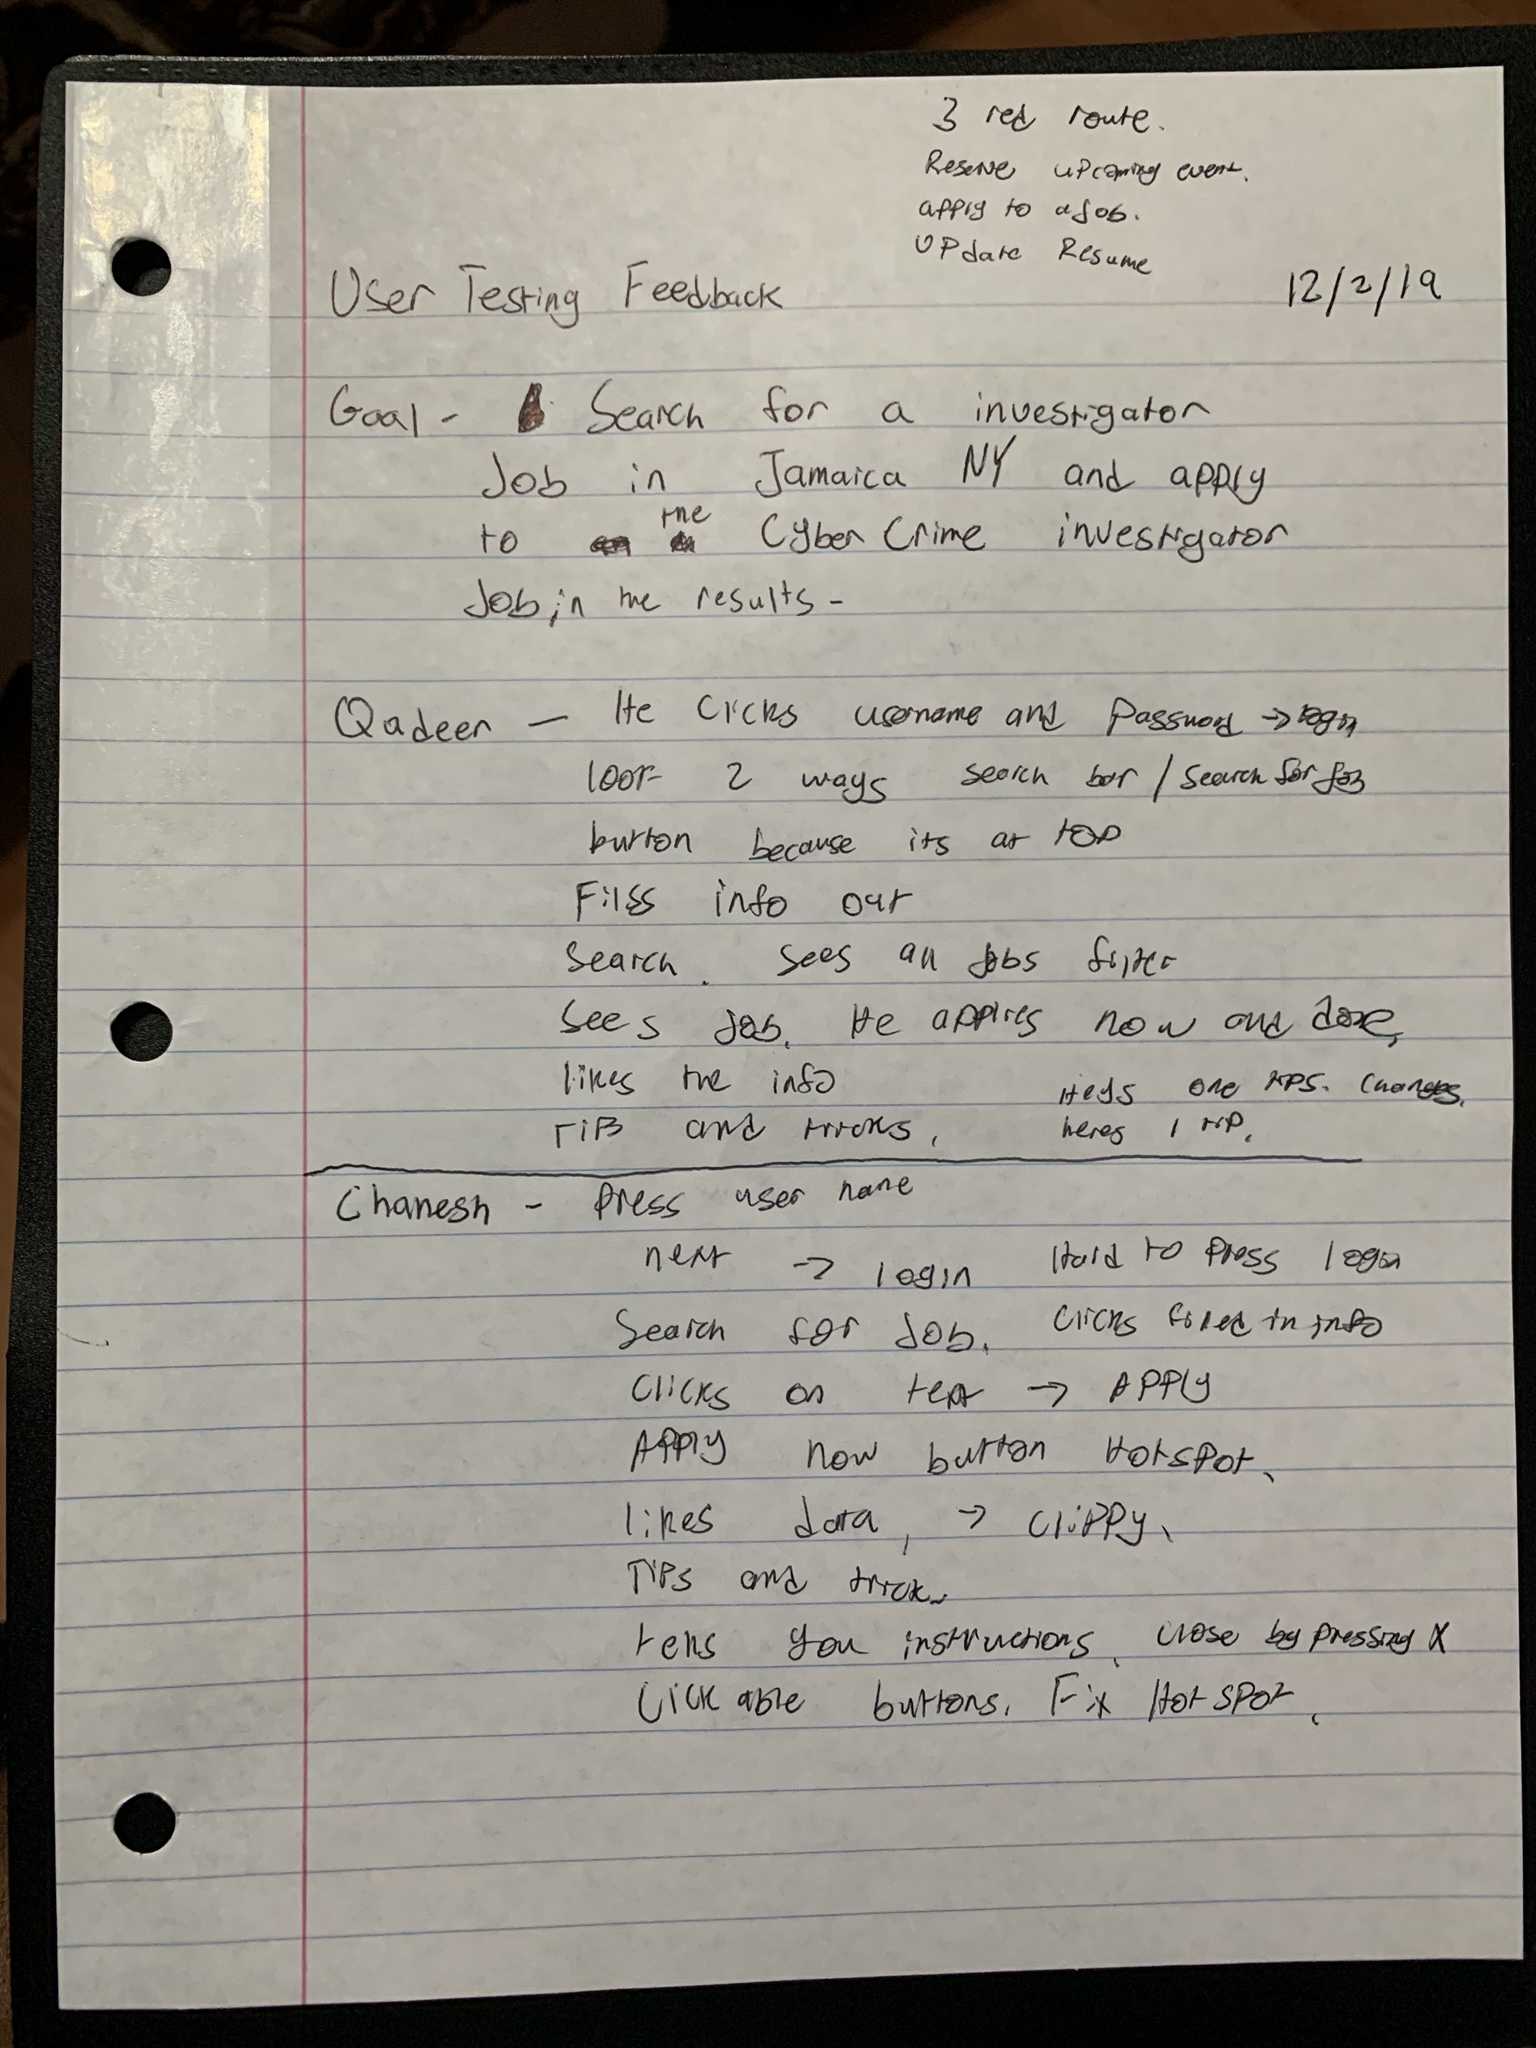 3 red route.
Reserve upcoming event.
apply to a Job.
UPdate Resume
User Testing Feedback 12/2/19
Goal - Search for a investigator
Job in Jamaica NY and apply
to the Cyber Crime investigator
Job in the results -
Qadeer - He clicks username and Password → login
look 2 ways search bar / Search for Job
button because its at top
Fills info out
Search. Sees all Jobs filter
Sees Job. He applies now and done,
likes the info
one tips. changes.
Tips and tricks, heres 1 tip.
Chanesh - Press user name
next → login Hard to press login
Search for Job. Clicks filled in info
Clicks on text → APPly
APPly now button HotsPot.
likes data, → cliPPy.
TiPs and trick.
tells you instructions. Close by pressing X
Clickable buttons. Fix HotsPot.